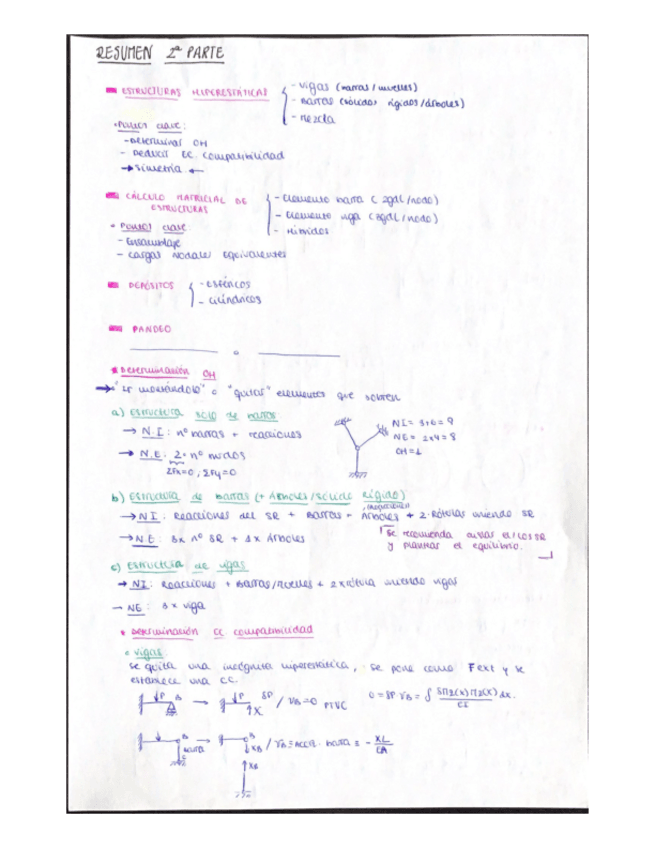 RESUMEN 2ª PARTE
ESTRUCTURAS HIPERESTÁTICAS
- Vigas (barras/muelles)
- Barras (sólidos rígidos/árboles)
- Mezcla
• Puntos clave:
- Determinar GH
- Deducir EC. Compatibilidad
→ Simetría ←
CÁLCULO MATRICIAL DE ESTRUCTURAS
- Elemento barra (2gdl/nodo)
- Elemento viga (3gdl/nodo)
- Híbridos
• Puntos clave:
- Ensamblaje
- Cargas nodales equivalentes
DEPÓSITOS
- esféricos
- cilíndricos
PANDEO
Determinación GH
"Ir montándolo" o "quitar" elementos que sobren
a) Estructura solo de barras:
→ N.I: nº barras + reacciones
→ N.E: 2 · nº nudos
ΣFx=0; ΣFy=0
NI = 3+6 = 9
NE = 2x4 = 8
GH=1
b) Estructura de barras (+ Árboles/sólido rígido)
→ NI: Reacciones del SR + Barras + Árboles + 2·Rótulas uniendo SR
→ N.E: 3x nº SR + 1x Árboles
Se recomienda aislar el/los SR
y plantear el equilibrio.
c) Estructura de vigas
→ NI: Reacciones + Barras/muelles + 2xrótula uniendo vigas
→ NE: 3 x viga
• Determinación EC compatibilidad
• Vigas
Se quita una incógnita hiperestática, se pone como F ext y se
establece una CC.
P B → P X δP / VB=0 PTVC
B barra C → B XB / VB = Acc. barra = - XL/EA
XB